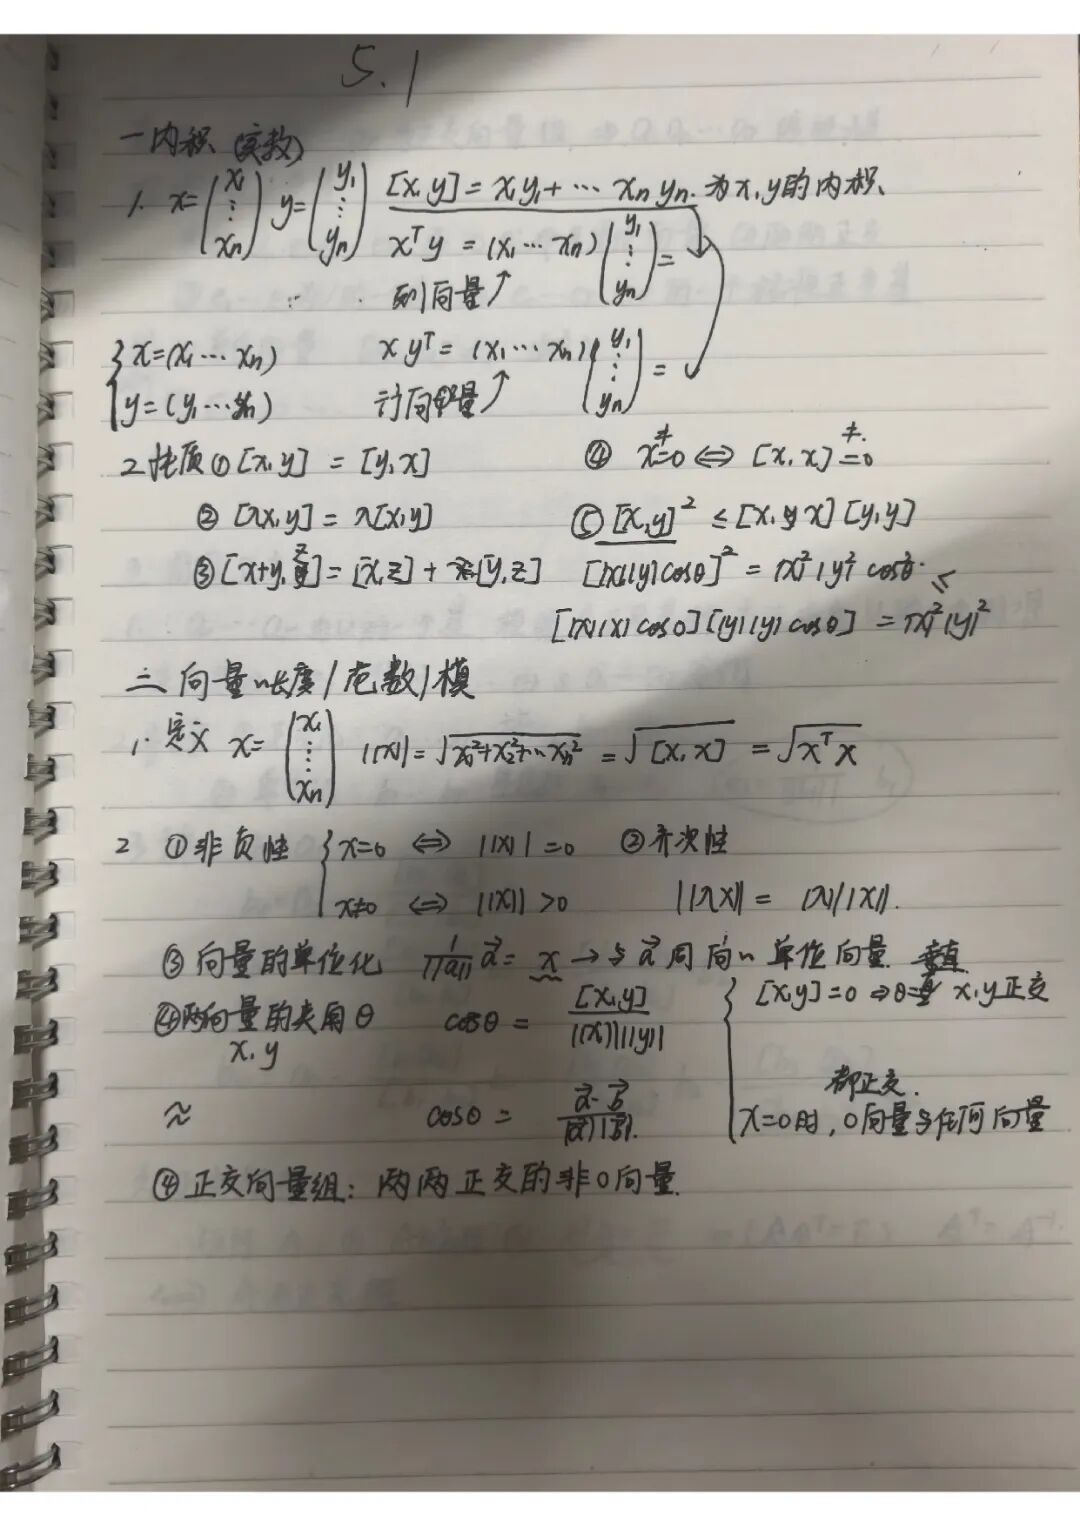 5.1
一 内积 (实数)
1. x=(x₁ ⋮ xₙ) y=(y₁ ⋮ yₙ) [x,y]=x₁y₁+⋯xₙyₙ. 为x,y的内积、
xᵀy =(x₁⋯xₙ)(y₁ ⋮ yₙ)=
列向量↗
{x=(x₁⋯xₙ) xyᵀ=(x₁⋯xₙ)(y₁ ⋮ yₙ)=
y=(y₁⋯yₙ) 行向量↗
2 性质①[x,y]=[y,x] ④ x≠=0 ⇔ [x,x]≠=0
② [λx,y]=λ[x,y] ⑤ [x,y]² ≤[x,x][y,y]
③[x+y,z]=[x,z]+[y,z] [|x||y|cosθ]²=|x|²|y|²cos²θ ≤
[|x||x|cos0][|y||y|cosθ] =|x|²|y|²
二 向量n长度/范数/模
1. 定义 x=(x₁ ⋮ xₙ) ||x||=√x₁²+x₂²+…xₙ² =√[x,x] =√xᵀx
2 ①非负性 {x=0 ⇔ ||x||=0 ②齐次性
x≠0 ⇔ ||x||>0 ||λx||= |λ|||x||.
③ 向量的单位化 1/||a|| a⃗= x → 与a⃗同向n单位向量
④两向量的夹角θ cosθ=[x,y]/||x||||y|| {[x,y]=0 ⇒θ= x,y正交
x,y
都正交.
≈ cosθ = a⃗·b⃗/|a⃗||b⃗| x=0时,0向量与任何向量
④ 正交向量组: 两两正交的非0向量.